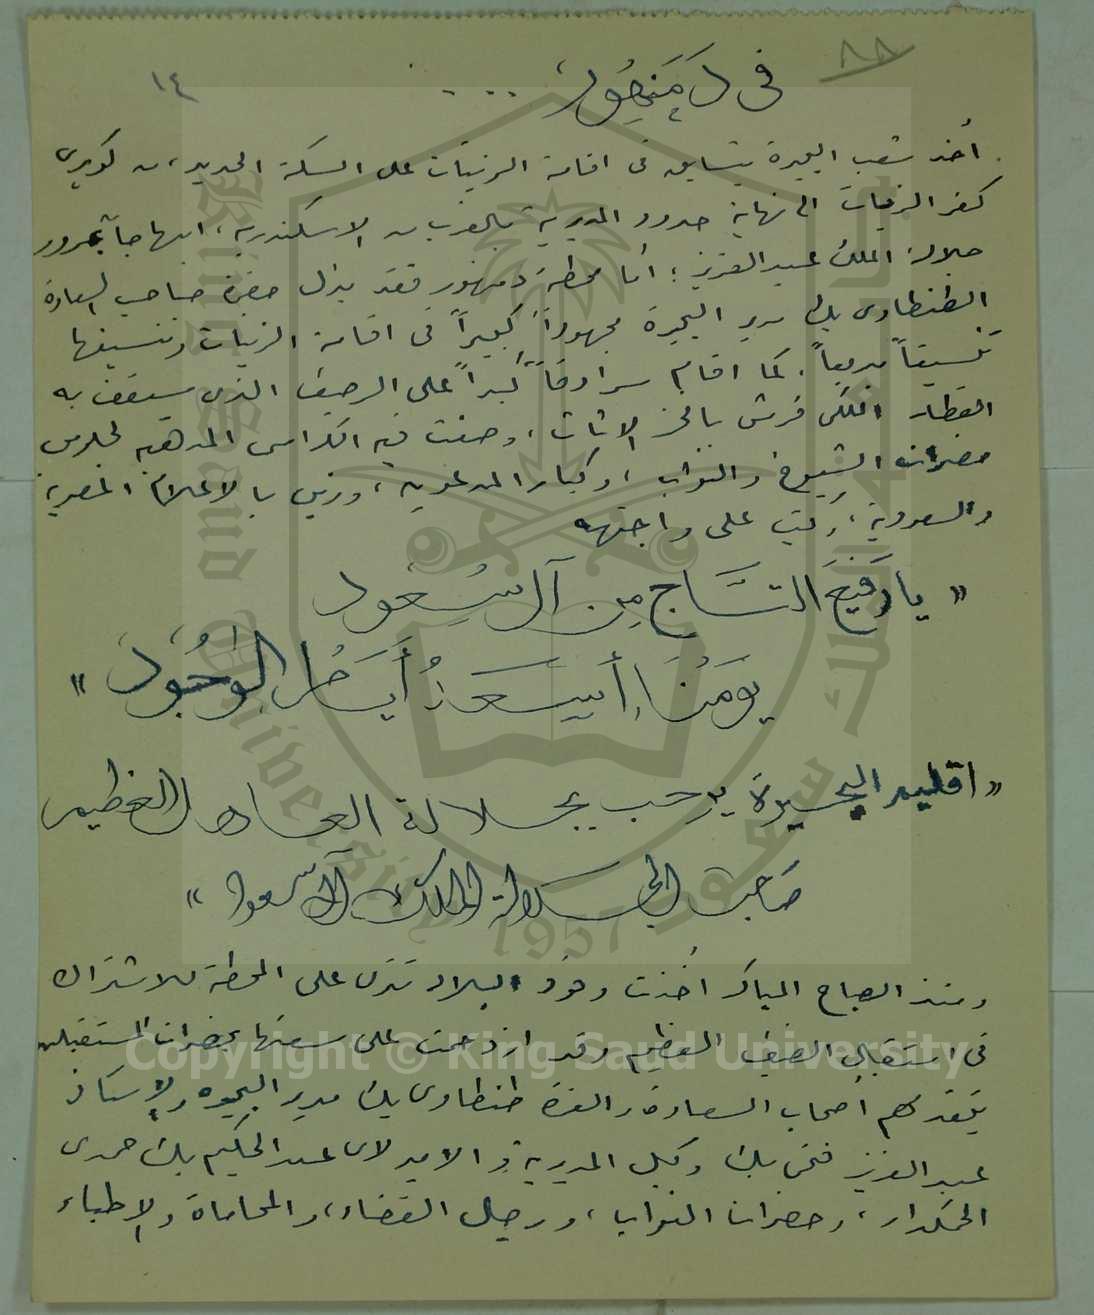 ٨٨
١٤
في دَمَنهُور ....
أخذ شعب البحيرة يتسابق فى اقامة الزينات على السكة الحديد، من كوبرى
كفر الزيات الى نهاية حدود المديرية بالقرب من الاسكندرية، ابتهاجاً بمرور
جلالة الملك عبد العزيز؛ أما محطة دمنهور فقد بذل حضرة صاحب السعادة
الطنطاوى بك مدير البحيرة مجهوداً كبيراً فى اقامة الزينات وتنسيقها
تنسيقاً بديعاً. كما اقام سرادقاً كبيراً على الرصيف الذى سيقف به
القطار الملكى فرش بافخر الاثاث، وصفت فيه الكراسى المذهبة لجلوس
حضرات الشيوخ والنواب، وكبار المدعوين، وزين بالاعلام المصرية
والسعودية، وكتب على واجهته
« يا رَفيعَ التَّاجِ مِن آلِ سُعُود
يَومُنَا أَسعَدُ أيَّامِ الوُجُود »
« اقليم البحيرة يرحب بجلالة العاهل العظيم
صَاحب الجلالة الملك آل سعود »
ومنذ الصباح الباكر أخذت وفود البلاد تترى على المحطة للاشتراك
فى استقبال الضيف العظيم وقد ازدحمت على سعتها بحضرات المستقبلين
يتقدمهم اصحاب السعادة والعزة طنطاوى بك مدير البحيرة والاستاذ
عبد العزيز فتحى بك وكيل المديرية والاميرلاى عبد الحكيم بك حمدى
الحكمدار، وحضرات النواب، ورجال القضاء، والمحاماة والاطباء
Copyright © King Saud University
King Saud University
جامعة الملك سعود
1957